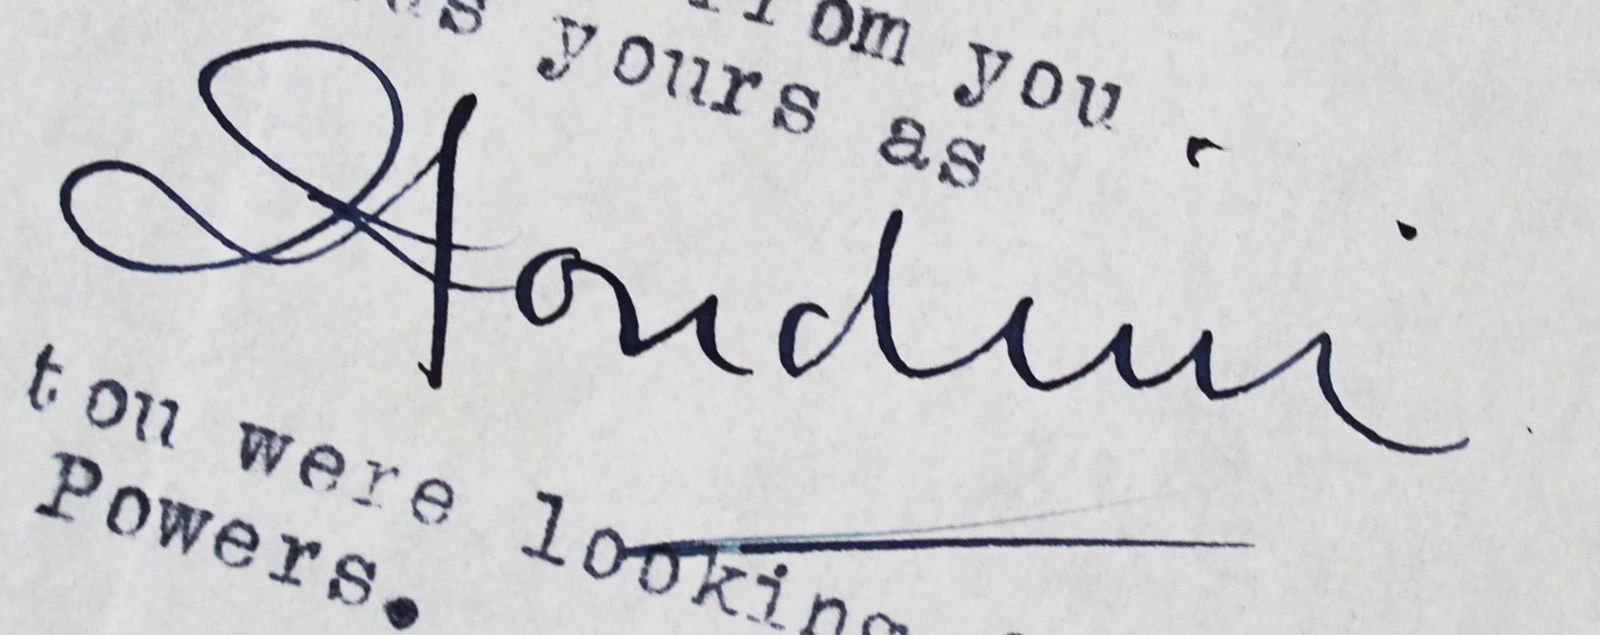 from you
s yours as
Houdini
ton were looking
Powers.